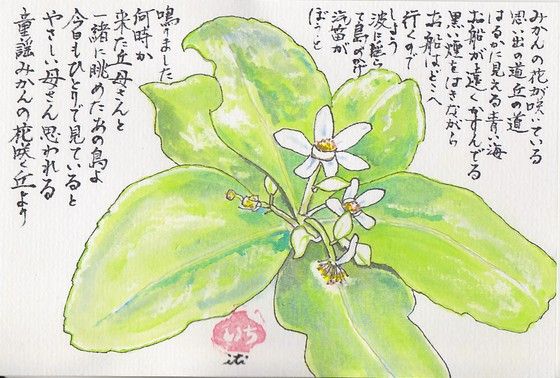 みかんの花が咲いている
思い出の道丘の道
はるかに見える青い海
お船が遠くかすんでる
黒い煙をはきながら
お船はどこへ
行くので
しょう
波に揺ら
れて島のかげ
汽笛が
ぼうっと
鳴りました
何時か
来た丘母さんと
一緒に眺めたあの島よ
今日もひとりで見ていると
やさしい母さん思われる
童謡みかんの花咲く丘より
いち
iti